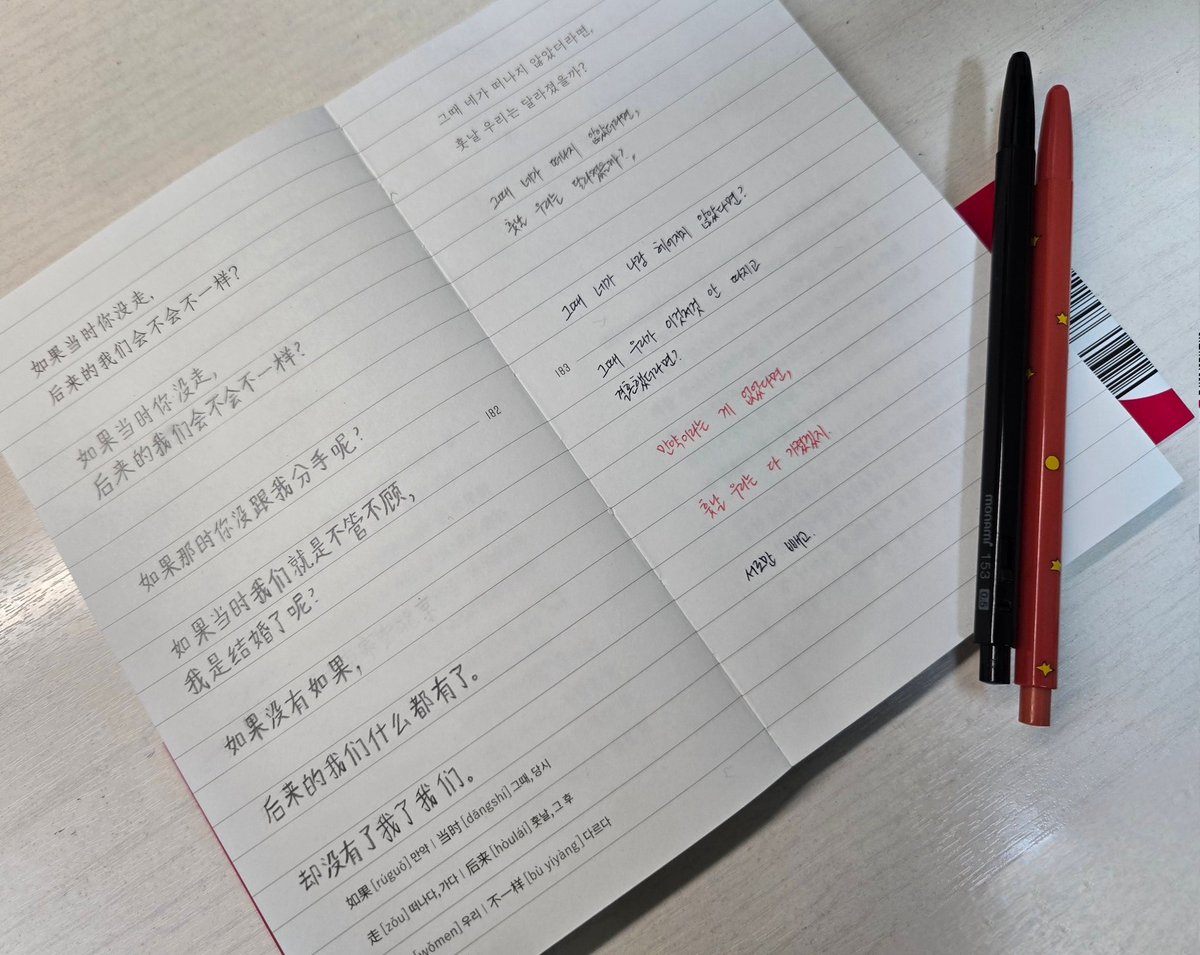 如果当时你没走,
后来的我们会不会不一样?
如果当时你没走,
后来的我们会不会不一样?
如果那时你没跟我分手呢?
如果当时我们就是不管不顾,
我是结婚了呢?
如果没有如果,
后来的我们什么都有了。
却没有了我了我们。
如果 [rúguǒ] 만약 | 当时 [dāngshí] 그때, 당시
走 [zǒu] 떠나다, 가다 | 后来 [hòulái] 훗날, 그 후
[wǒmen] 우리 | 不一样 [bù yíyàng] 다르다
182
그때 네가 떠나지 않았더라면,
훗날 우리는 달라졌을까?
그때 네가 떠나지 않았더라면,
훗날 우리는 달라졌을까?,
그때 네가 나랑 헤어지지 않았다면?
그때 우리가 이것저것 안 따지고
결혼했더라면?
만약이라는 게 없었다면,
훗날 우리는 다 가졌겠지.
서로만 빼고.
183
monami 153 0.5